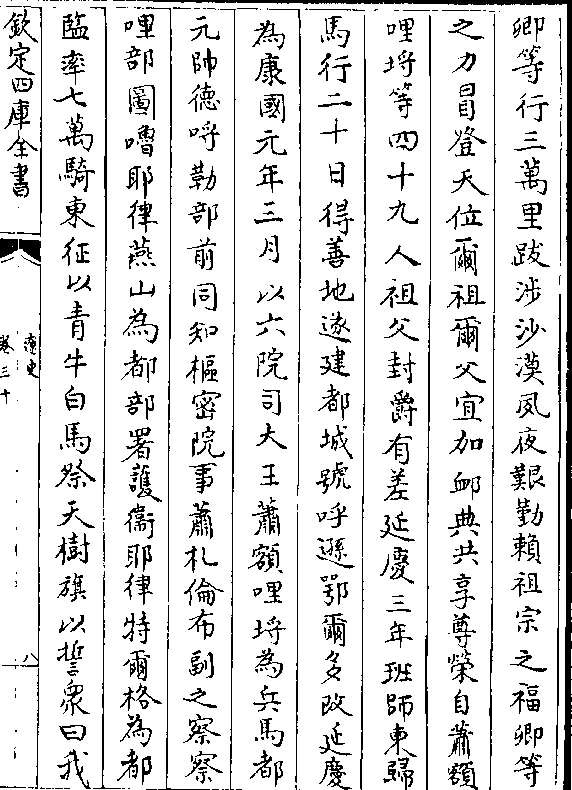 卿等行三萬里跋涉沙漠夙夜艱勤賴祖宗之福卿等
之力冒登天位爾祖爾父宜加䘏典共享尊榮自蕭額
哩埒等四十九人祖父封爵有差延慶三年班師東歸
馬行二十日得善地遂建都城號呼遜鄂爾多改延慶
為康國元年三月以六院司大王蕭額哩埒為兵馬都
元帥德呼勒部前同知樞密院事蕭札倫布副之察察
哩部圖嚕耶律燕山為都部署護衛耶律特爾格為都
監率七萬騎東征以青牛白馬祭天樹旗以誓衆曰我
欽定四庫全書
遼史
卷三十
八